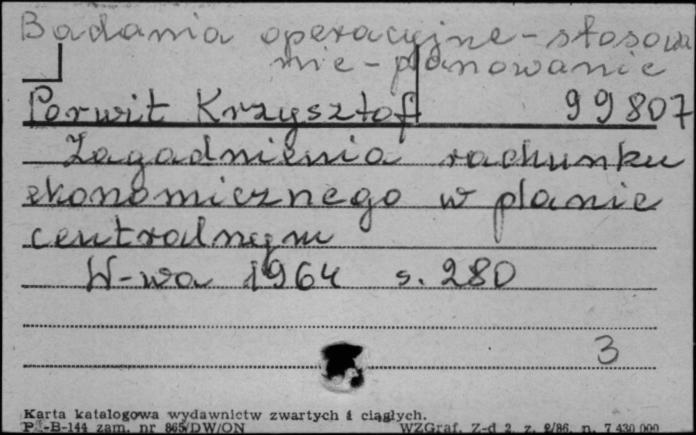 Badania operacyjne-stosowa
nie-planowanie
Porwit Krzysztof 99807
Zagadnienia rachunku
ekonomicznego w planie
centralnym
W-wa 1964 s. 280
3
Karta katalogowa wydawnictw zwartych i ciągłych.
-B-144 zam. nr 865/DW/ON WZGraf. Z-d 2, z. 2/86, n. 7 430 000